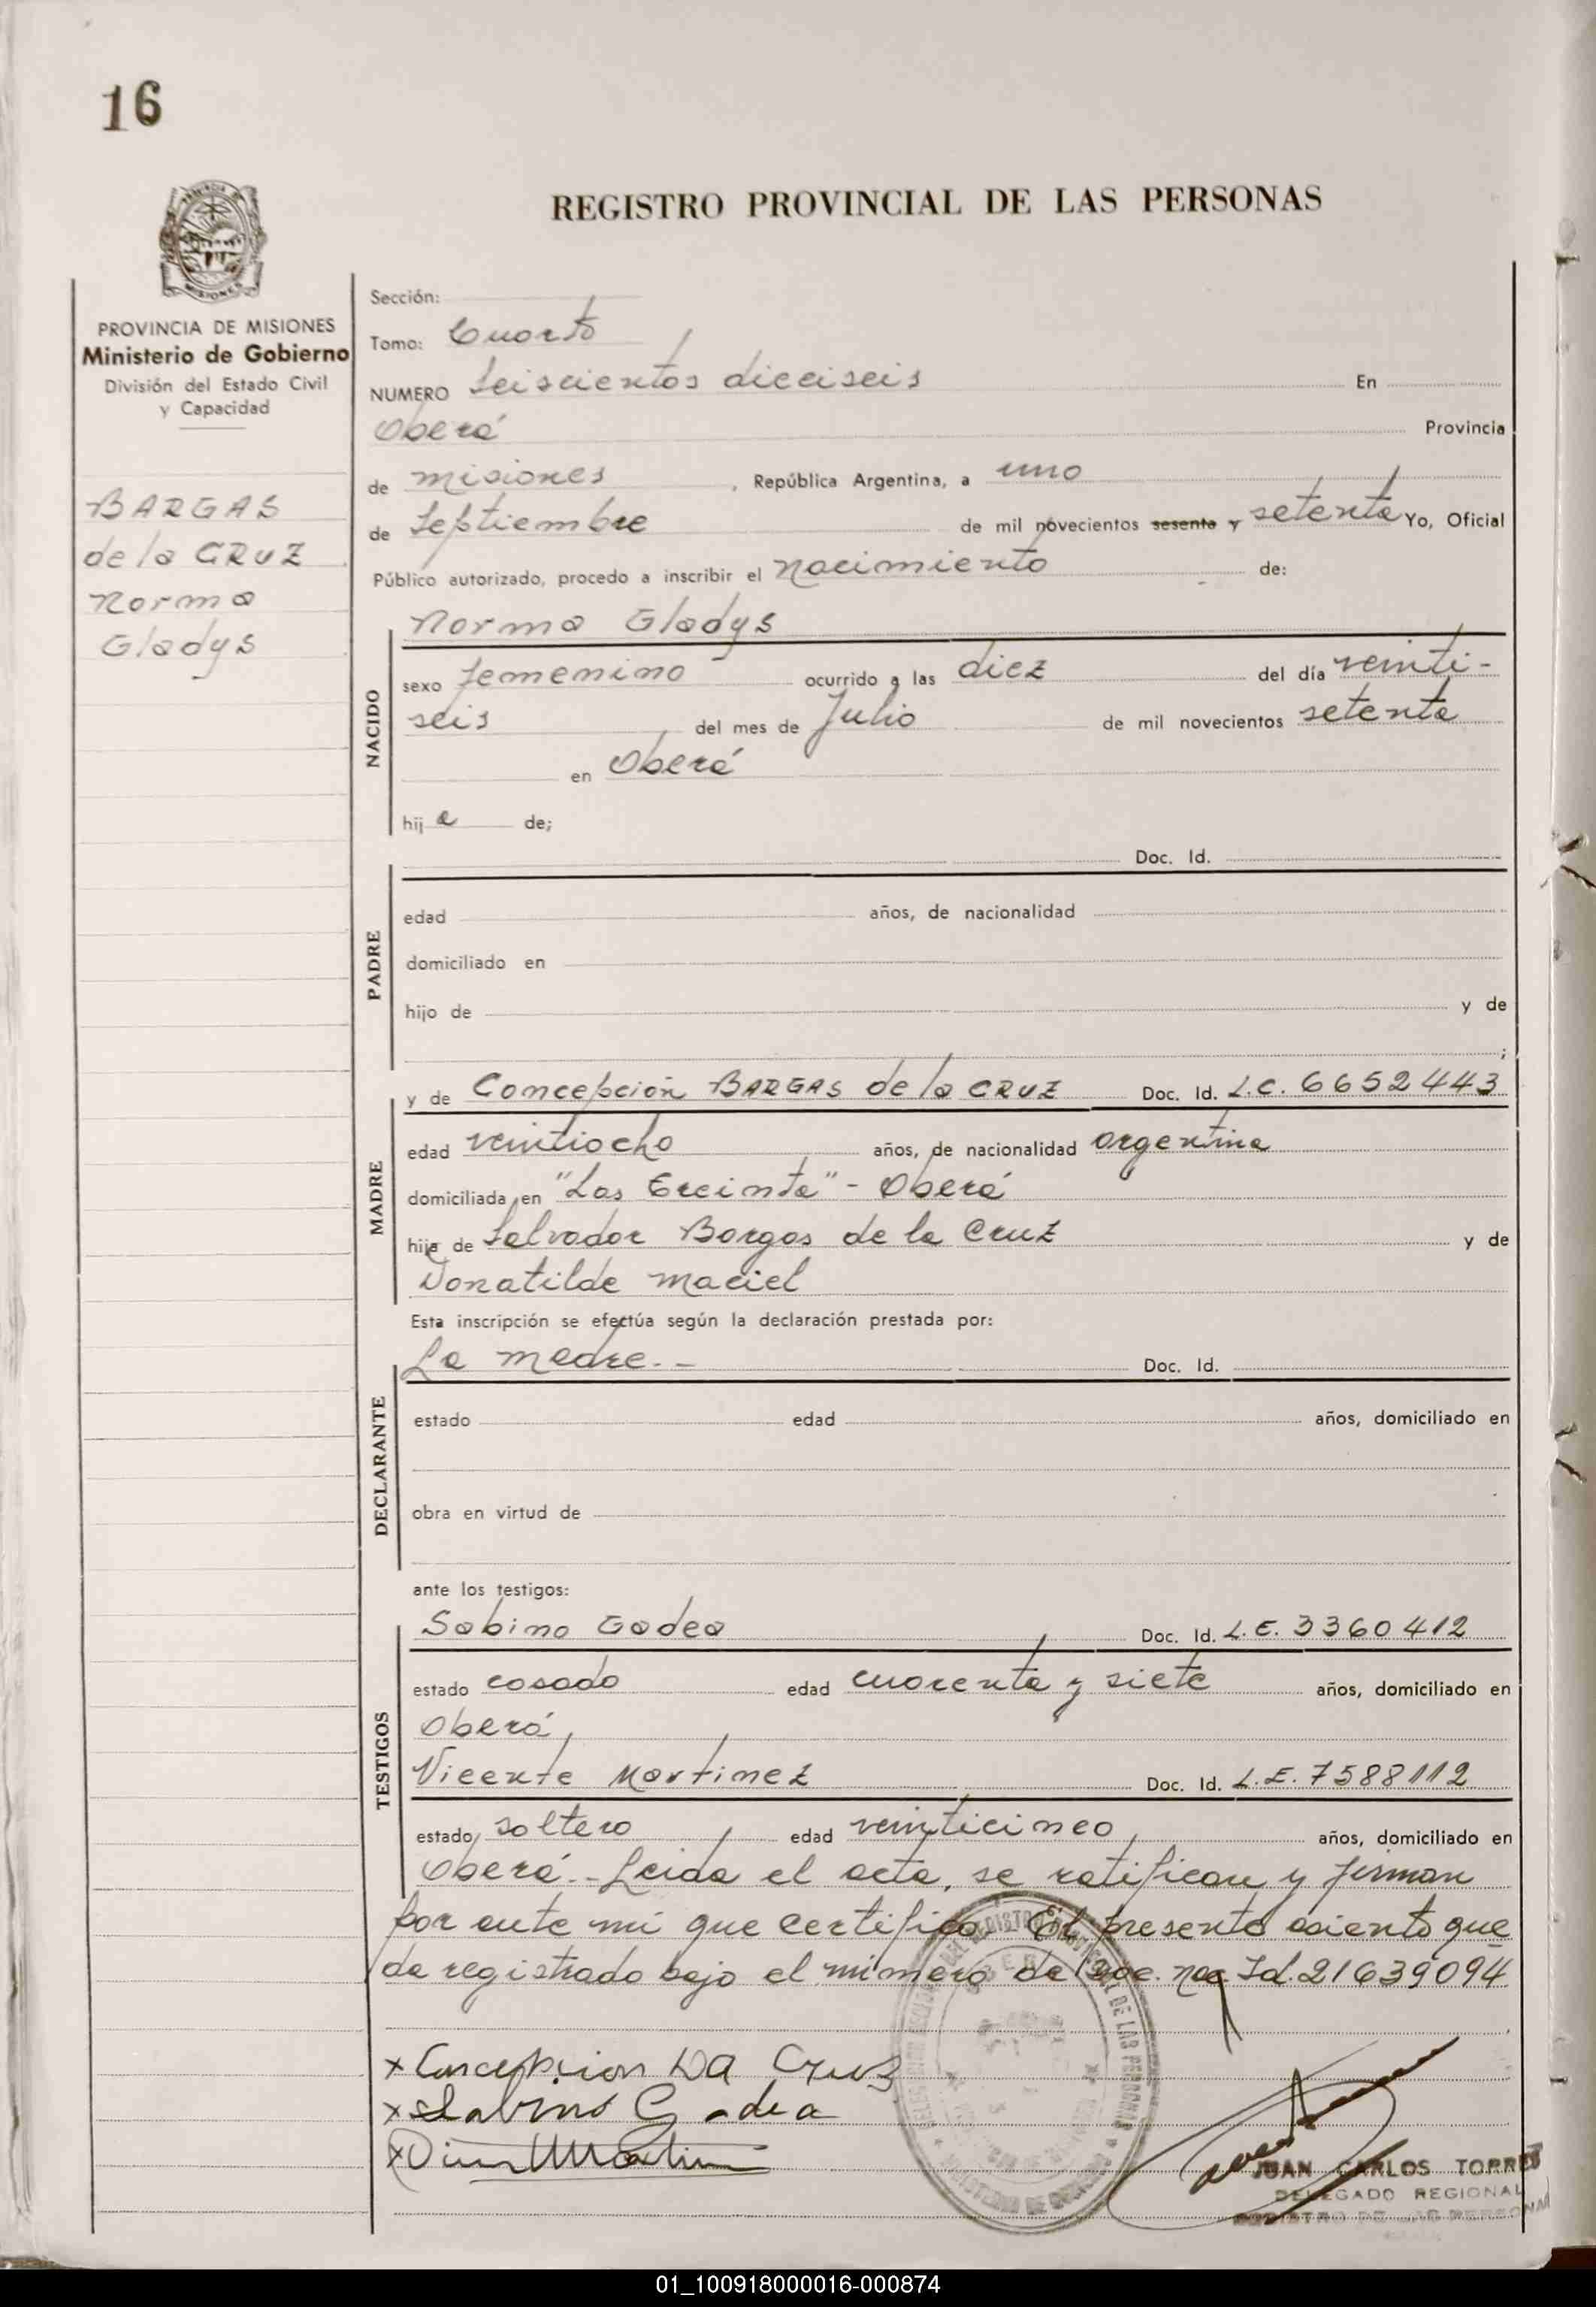 16
REGISTRO PROVINCIAL DE LAS PERSONAS
MISIONES
PROVINCIA DE MISIONES
Ministerio de Gobierno
División del Estado Civil
y Capacidad
BARGAS
de la CRUZ
Norma
Gladys
Sección:
Tomo: Cuarto
NUMERO Seiscientos dieciseis En
Oberá Provincia
de Misiones, República Argentina, a uno
de Septiembre de mil novecientos sesenta y setenta Yo, Oficial
Público autorizado, procedo a inscribir el nacimiento de:
NACIDO
Norma Gladys
sexo femenino ocurrido a las diez del día veinti-
seis del mes de Julio de mil novecientos setenta
en Oberá
hija de;
PADRE
Doc. Id.
edad años, de nacionalidad
domiciliado en
hijo de y de
;
MADRE
y de Concepción BARGAS de la CRUZ Doc. Id. L.C. 6652443
edad veintiocho años, de nacionalidad argentina
domiciliada en "Las - Oberá
hija de Salvador Bargas de la Cruz y de
Donatilde Maciel
Esta inscripción se efectúa según la declaración prestada por:
DECLARANTE
La madre.- Doc. Id.
estado edad años, domiciliado en
obra en virtud de
ante los testigos:
TESTIGOS
Sabino Gadea Doc. Id. L.E. 3360412
estado casado edad cuarenta y siete años, domiciliado en
Oberá,
Vicente Martinez Doc. Id. L.E. 7588112
estado soltero edad veinticinco, años, domiciliado en
Oberá.- Leida el acta, se ratifican y firman
por ante mi que certifico. El presente asiento que
da registrado bajo el número de Doc. Nac. Id. 21639094
x Concepcion DA Cruz
x Sabino Gadea
x
JUAN CARLOS TORRES
DELEGADO REGIONAL
REGISTRO DE LAS PERSONAS
01_100918000016-000874